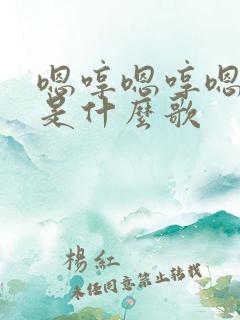 嗯哼嗯哼嗯
是什麼歌
楊紅
未經同意禁止轉載